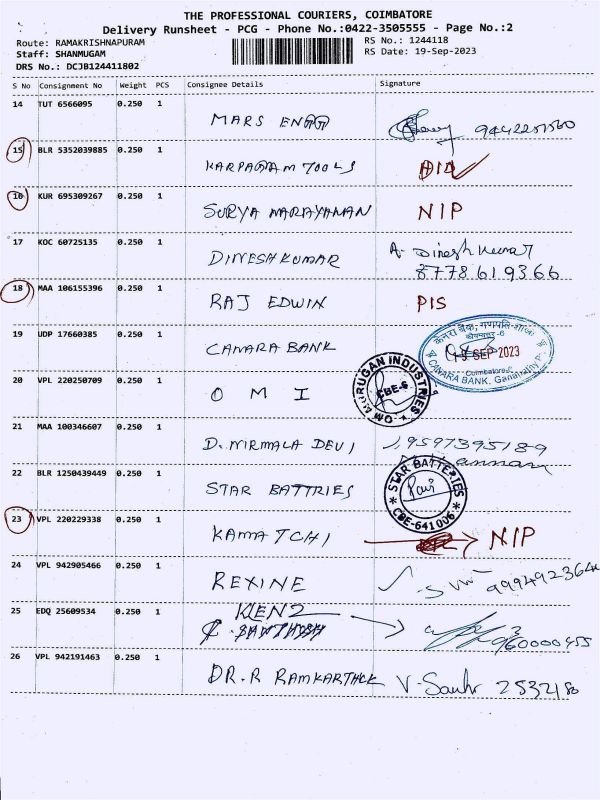 THE PROFESSIONAL COURIERS, COIMBATORE
Delivery Runsheet - PCG - Phone No.:0422-3505555 - Page No.:2
Route: RAMAKRISHNAPURAM
RS No.: 1244118
Staff: SHANMUGAM
RS Date: 19-Sep-2023
DRS No.: DCJB124411802
S No Consignment No Weight PCS Consignee Details Signature
14 TUT 6566095 0.250 1
MARS ENGG
15 BLR 5352039885 0.250 1
KARPAGAM TOOLS
16 KUR 695309267 0.250 1
SURYA NARAYANAN NIP
17 KOC 60725135 0.250 1
DINESH KUMAR A. Dinesh Kumar
8778619366
18 MAA 106155396 0.250 1
RAJ EDWIN PIS
19 UDP 17660385 0.250 1
CANARA BANK
केनरा बैंक, गणपति शाखा
कोयम्बतूर-6
SEP 2023
Coimbatore-6
CANARA BANK, Ganapathy
20 VPL 220250709 0.250 1
O M I
OM MURUGAN INDUSTRIES
CBE-6
21 MAA 100346607 0.250 1
D. NIRMALA DEVI 9597395189
22 BLR 1250439449 0.250 1
STAR BATTRIES
STAR BATTERIES
CBE-641006
23 VPL 220229338 0.250 1
KAMATCHI NIP
24 VPL 942905466 0.250 1
REXINE
25 EDQ 25609534 0.250 1
KLENZ
SANTHOSH
9600000455
26 VPL 942191463 0.250 1
DR. R RAMKARTHCK